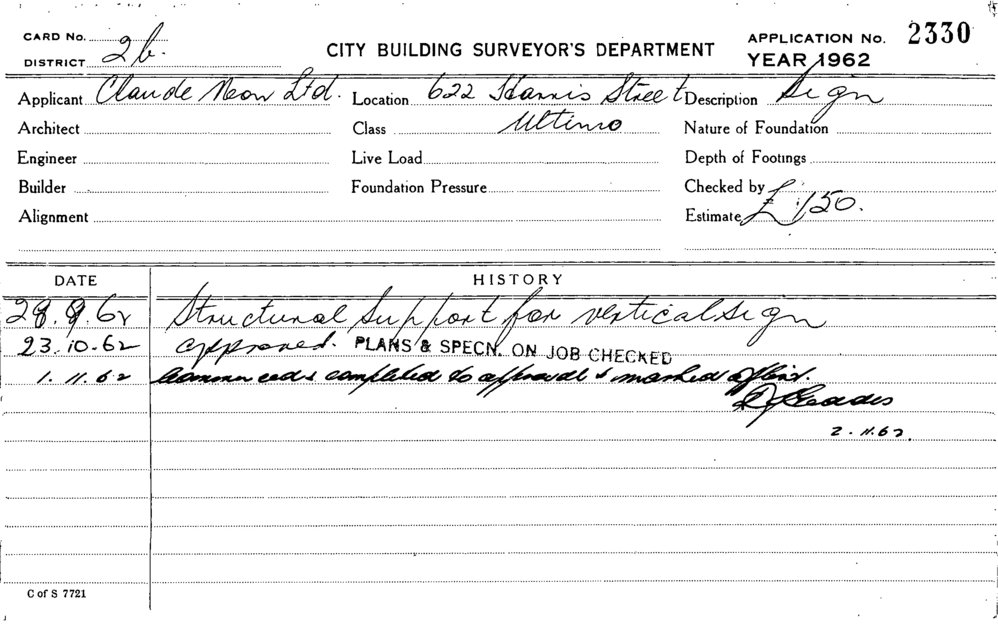 CARD No.
DISTRICT 2b.
CITY BUILDING SURVEYOR'S DEPARTMENT
APPLICATION No. 2330
YEAR 1962
Applicant Claude Neon Ltd. Location 622 Harris Street Description Sign
Architect Class Ultimo Nature of Foundation
Engineer Live Load Depth of Footings
Builder Foundation Pressure Checked by
Alignment Estimate £150.
DATE HISTORY
28.9.62 Structural Support for vertical sign
23.10.62 approved. PLANS & SPECN. ON JOB CHECKED
1.11.62 completed to approval & marked off
2.11.62.
C of S 7721